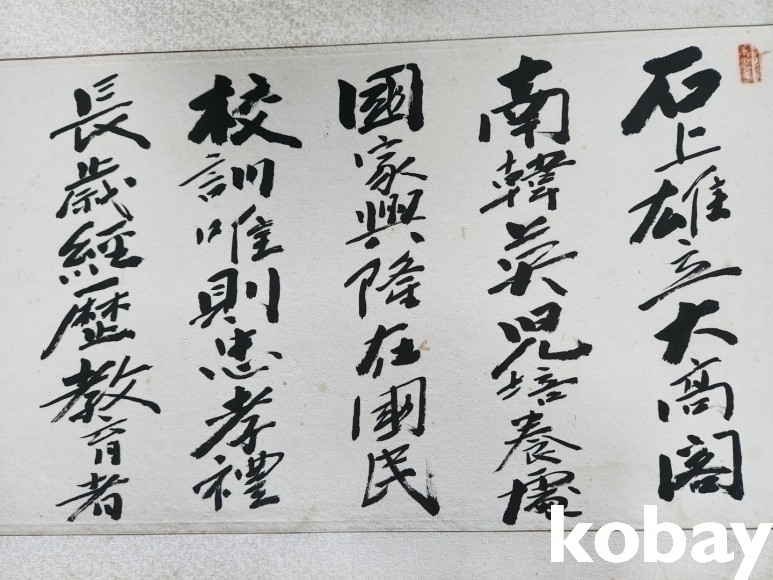 石上雄立大高阁
南韓英児培養壚
國家興隆在國民
校訓唯則忠孝禮
長歳經歷教育者
kobay